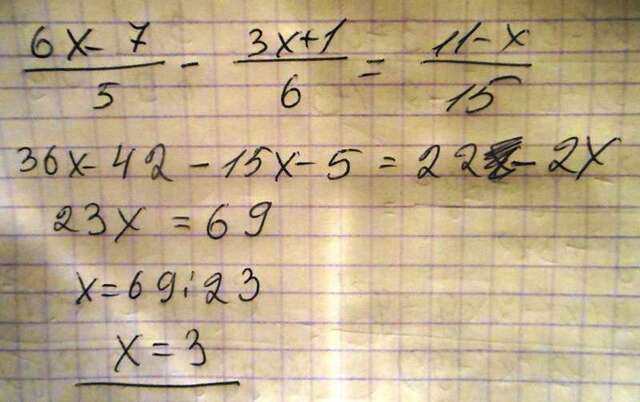 6x-7/5 - 3x+1/6 = 11-x/15
36x-42-15x-5=22-2x
23x=69
x=69:23
x=3